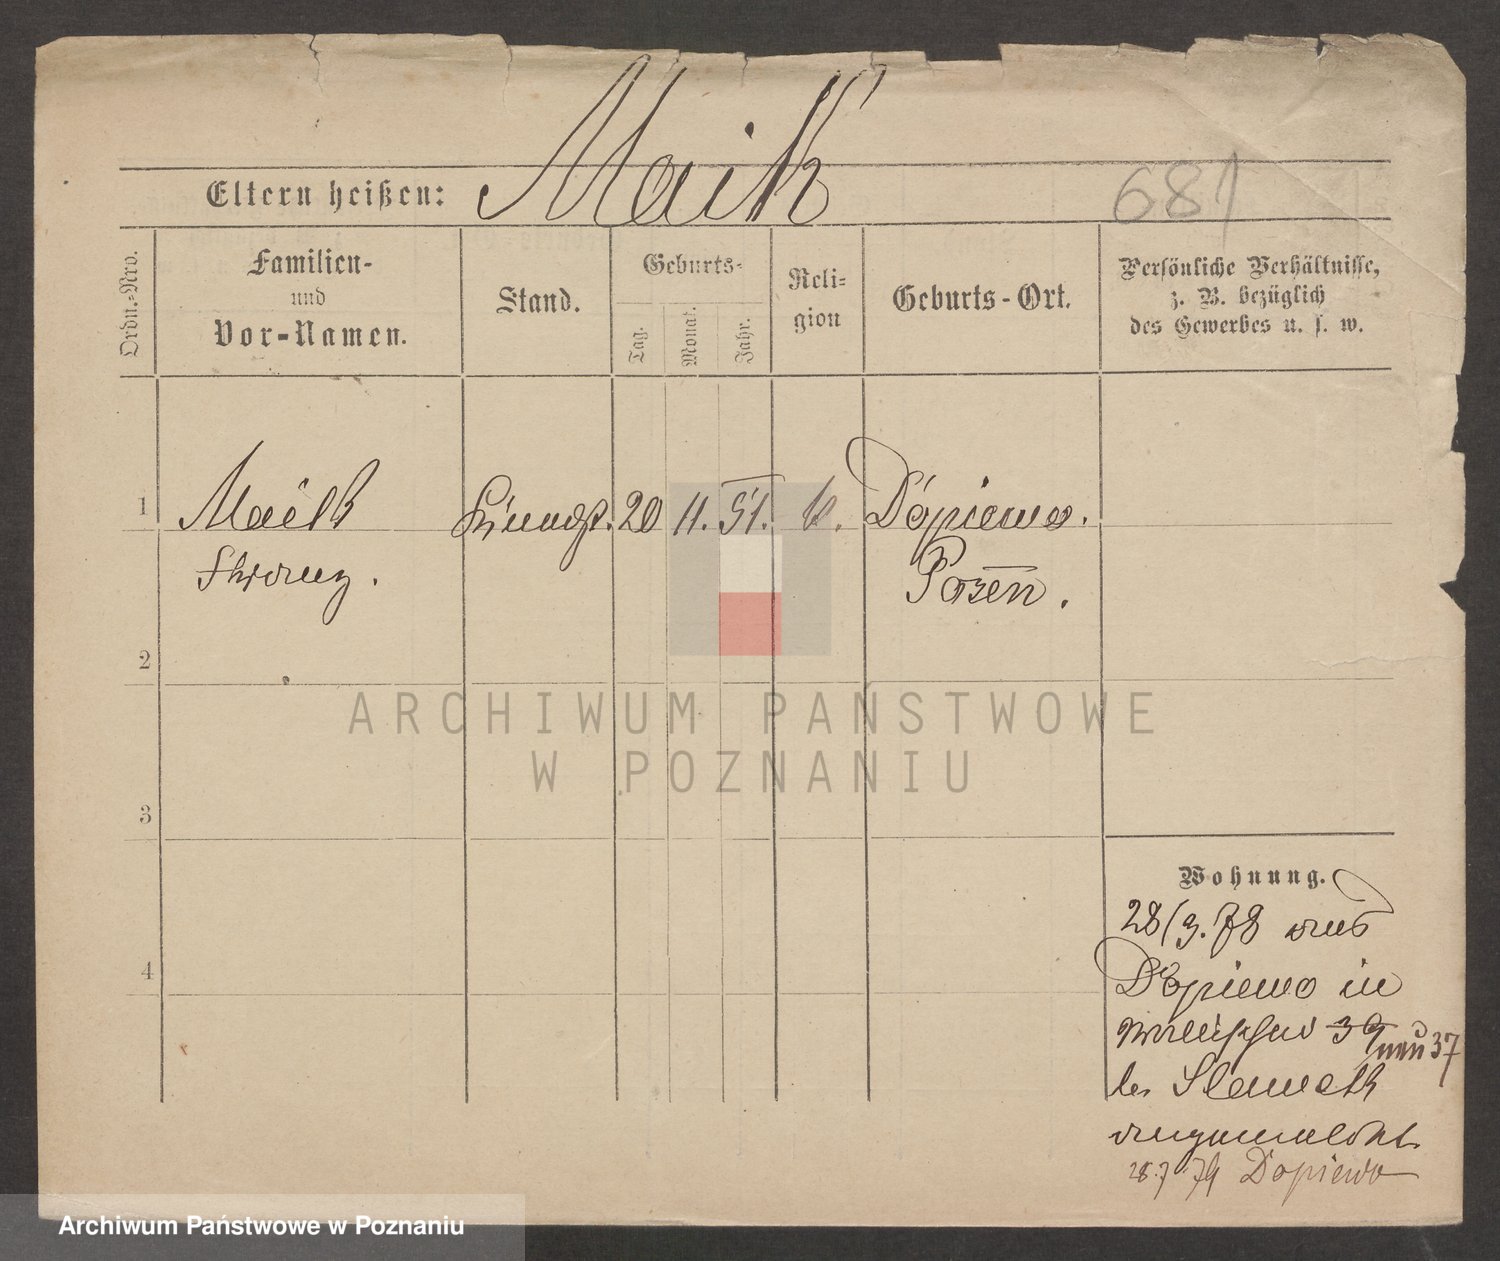 Maik
Eltern heißen:
681
Ordn.-Nro.
Familien-
und
Vor-Namen.
Stand.
Geburts-
Tag.
Monat.
Jahr.
Reli-
gion
Geburts-Ort.
Persönliche Verhältnisse,
z. B. bezüglich
des Gewerbes u. s. w.
1
Maik
Franz.
20
11.
51.
k.
Dopiewo.
Posen.
2
3
4
ARCHIWUM PAŃSTWOWE
W POZNANIU
Wohnung.
28/3.78 aus
Dopiewo in
Wallischei 39
neu 37
bei
angemeldet.
28.7.79 Dopiewo
Archiwum Państwowe w Poznaniu